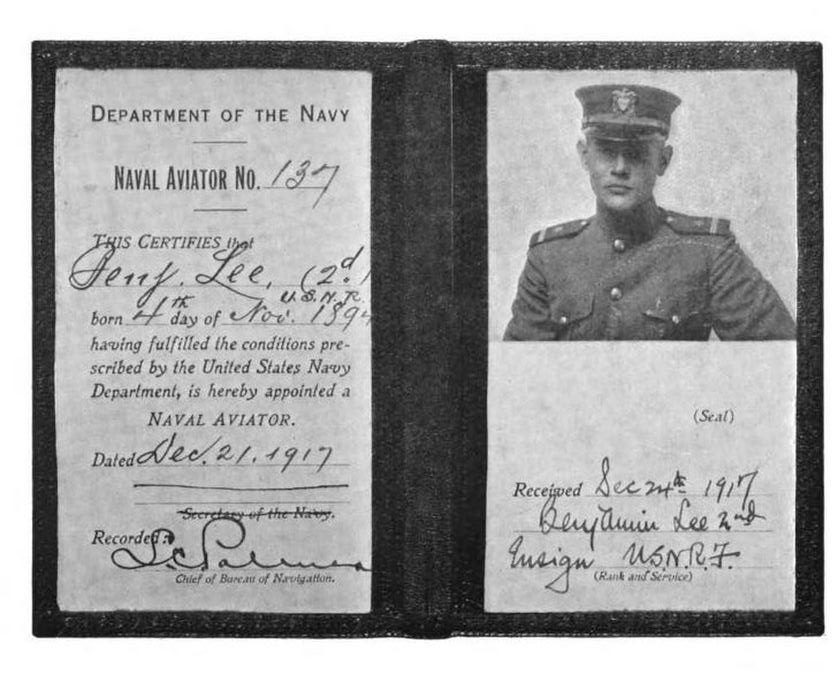 DEPARTMENT OF THE NAVY
NAVAL AVIATOR NO. 137
THIS CERTIFIES that
Benj. Lee, (2d)
U.S.N.R.
born 4th day of Nov. 1894
having fulfilled the conditions pre-
scribed by the United States Navy
Department, is hereby appointed a
NAVAL AVIATOR.
Dated Dec. 21. 1917
Secretary of the Navy.
Recorded: L. C. Palmer
Chief of Bureau of Navigation.
(Seal)
Received Dec 24th 1917
Benjamin Lee 2nd
Ensign U.S.N.R.F.
(Rank and Service)